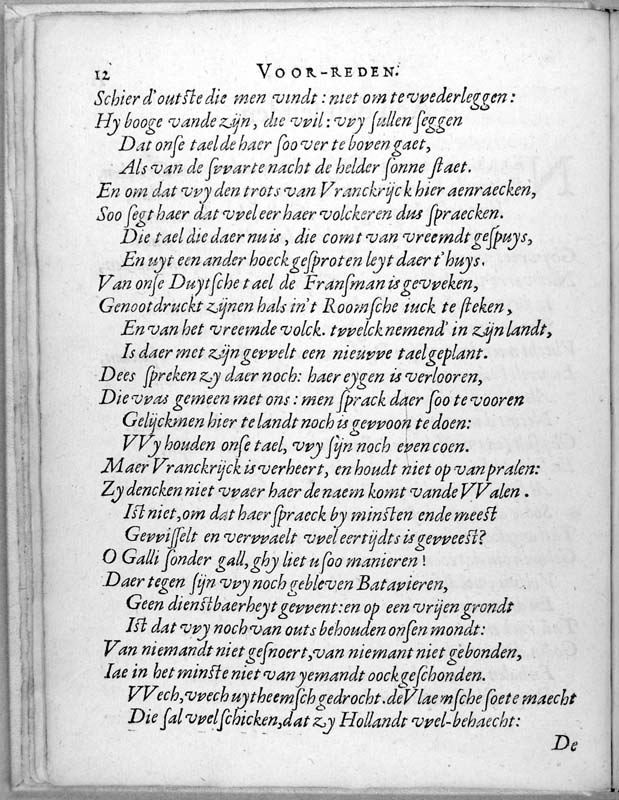 12 VOOR-REDEN.
Schier d'outſte die men vindt: niet om te vvederleggen:
Hy booge vande zijn, die vvil: vvy ſullen ſeggen
Dat onſe tael de haer ſoo ver te boven gaet,
Als van de ſvvarte nacht de helder ſonne ſtaet.
En om dat vvy den trots van Vranckrijck hier aenraecken,
Soo ſegt haer dat vvel eer haer volckeren dus ſpraecken.
Die tael die daer nu is, die comt van vreemdt geſpuys,
En uyt een ander hoeck geſproten leyt daer t'huys.
Van onſe Duytſche tael de Franſman is gevveken,
Genootdruckt zijnen hals in't Roomſche iuck te ſteken,
En van het vreemde volck. tvvelck nemend' in zijn landt,
Is daer met zijn gevvelt een nieuvve tael geplant.
Dees ſpreken zy daer noch: haer eygen is verlooren,
Die vvas gemeen met ons: men ſprack daer ſoo te vooren
Gelijckmen hier te landt noch is gevvoon te doen:
VVy houden onſe tael, vvy ſijn noch even coen.
Maer Vranckrijck is verheert, en houdt niet op van pralen:
Zy dencken niet vvaer haer de naem komt vande VValen.
Iſt niet, om dat haer ſpraeck by minſten ende meeſt
Gevviſſelt en vervvaelt vvel eertijdts is gevveeſt?
O Galli ſonder gall, ghy liet u ſoo manieren!
Daer tegen ſijn vvy noch gebleven Batavieren,
Geen dienſtbaerheyt gevvent: en op een vrijen grondt
Iſt dat vvy noch van outs behouden onſen mondt:
Van niemandt niet geſnoert, van niemant niet gebonden,
Iae in het minſte niet van yemandt oock geſchonden.
VVech, vvech uytheemſch gedrocht. de Vlaemſche ſoete maecht
Die ſal vvel ſchicken, dat zy Hollandt vvel-behaecht:
De